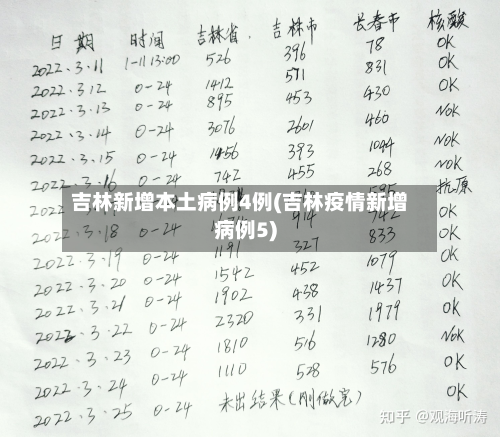 日期 时间 吉林省. 吉林市 长春市 核酸
2022.3.11 1-11 13:00 526 396 78 OK
2022.3.12 0-24 1412 831 OK
2022.3.13 0-24 895 453 430 OK
2022.3.14 0-24 3076 2601 460 NOK
2022.3.15 0-24 1456 393 1044 NOK
2022.3.16 0-24 742 455 268 NOK
抗原
吉林新增本土病例4例(吉林疫情新增
病例5)
2022.3.18 914 742 OK
2022.3.19 0-24 1191 327 833 OK
2022.3.20 0-24 1542 452 1079 OK
2022.3.21 0-24 1902 438 1437 OK
2022.3.22 0-24 2320 331 1979 OK
2022.3.23 0-24 1810 516 1280 NOK
2022.3.24 0-24 1110 528 576 OK
2022.3.25 0-24 未出结果(刚做完) OK
知乎 @观海听涛